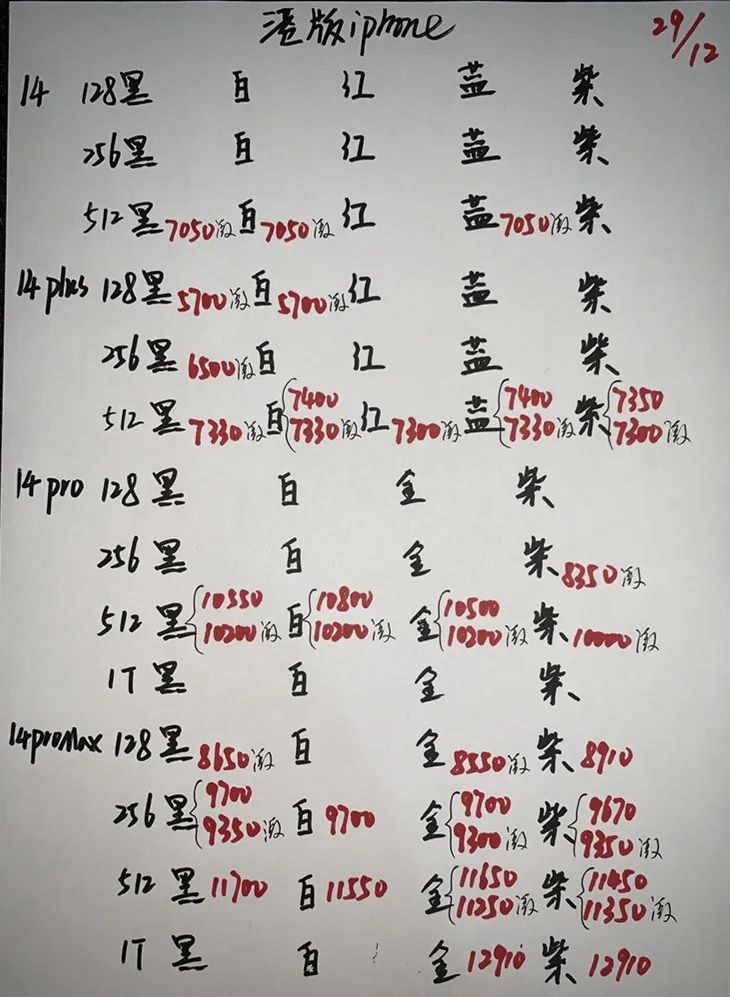 港版iphone 29/12
14 128黑 白 红 蓝 紫
256黑 白 红 蓝 紫
512黑7050激 白7050激 红 蓝7050激 紫
14plus 128黑5700激 白5700激 红 蓝 紫
256黑6500激 白 红 蓝 紫
512黑7330激 白{7400 7330激 红7300激 蓝{7400 7330激 紫{7350 7300激
14pro 128黑 白 金 紫
256黑 白 金 紫8350激
512黑{10550 10200激 白{10800 10200激 金{10500 10200激 紫10000激
1T黑 白 金 紫
14proMax 128黑8650激 白 金8550激 紫8910
256黑{9700 9350激 白9700 金{9700 9300激 紫{9670 9350激
512黑11700 白11550 金{11650 11250激 紫{11450 11350激
1T黑 白 金12910 紫12910